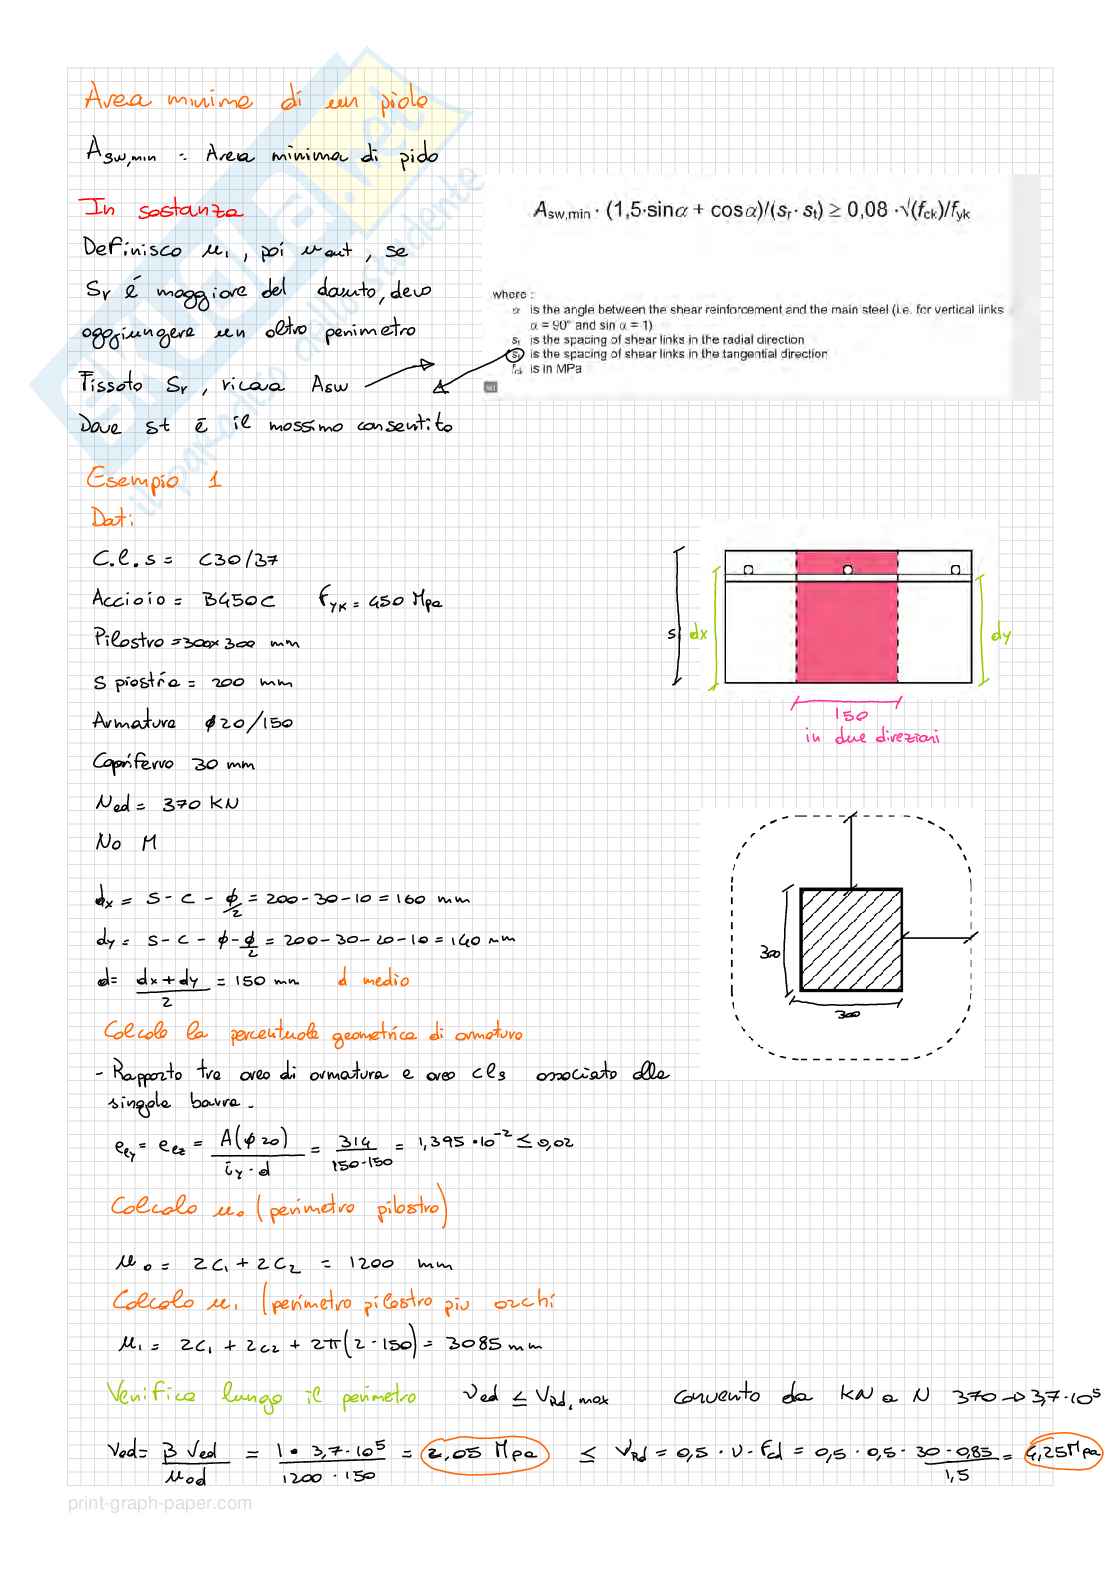 Area minima di un piolo
Asw,min : Area minima di piolo
In sostanza
Definisco u1, poi uout, se
Sr é maggiore del dovuto, devo
aggiungere un altro perimetro
Fissato Sr, ricava Asw
Dove st è il massimo consentito
Asw,min · (1,5·sinα + cosα)/(sr · st) ≥ 0,08 ·√(fck)/fyk
where :
α is the angle between the shear reinforcement and the main steel (i.e. for vertical links
α = 90° and sin α = 1)
sr is the spacing of shear links in the radial direction
st is the spacing of shear links in the tangential direction
fck is in MPa
Esempio 1
Dati:
C.l.s = C30/37
Acciaio = B450C fyk = 450 Mpa
Pilastro = 300x300 mm
S piastra = 200 mm
Armatura ϕ20/150
Copriferro 30 mm
Ned = 370 KN
No M
s
dx
dy
150
in due direzioni
dx = S - C - ϕ/2 = 200 - 30 - 10 = 160 mm
dy = S - C - ϕ - ϕ/2 = 200 - 30 - 20 - 10 = 140 mm
d = (dx + dy)/2 = 150 mm d medio
300
300
Calcolo la percentuale geometrica di armatura
- Rapporto tra area di armatura e area cls associato alla
singola barra.
ρly = ρlz = A(ϕ20)/(iy · d) = 314/(150·150) = 1,395 · 10⁻² ≤ 0,02
Calcolo u0 (perimetro pilastro)
u0 = 2C1 + 2C2 = 1200 mm
Calcolo u1 (perimetro pilastro piu archi
u1 = 2C1 + 2C2 + 2π(2·150) = 3085 mm
Verifica lungo il perimetro Ved ≤ VRd,max Converto da KN a N 370 → 3,7·10⁵
Ved = β Ved/(u0d) = 1 · 3,7·10⁵/(1200·150) = 2,05 Mpa ≤ VRd = 0,5 · ν · fcd = 0,5 · 0,5 · 30·0,85/1,5 = 4,25 Mpa
print-graph-paper.com